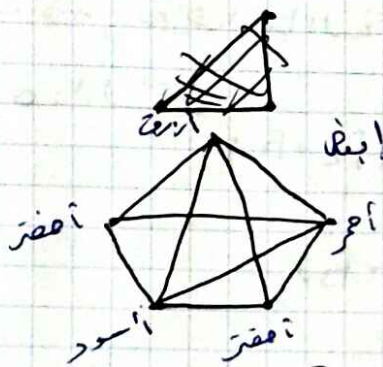 أزرق
ابيض
أخضر
أحمر
أسود
أخضر